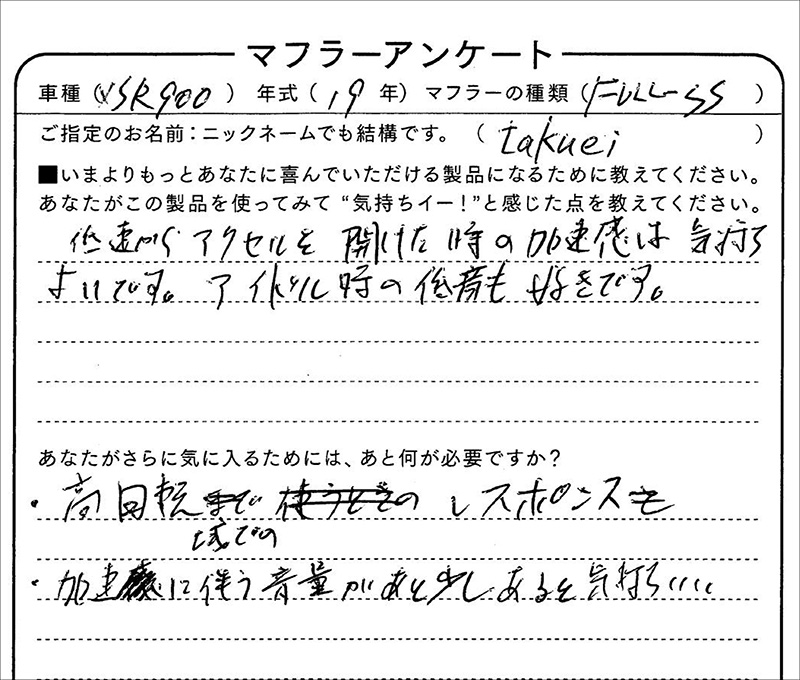 マフラーアンケート
車種（XSR900） 年式（19年） マフラーの種類（FULL-SS）
ご指定のお名前：ニックネームでも結構です。（takuei）
■いまよりもっとあなたに喜んでいただける製品になるために教えてください。
あなたがこの製品を使ってみて“気持ちイー！”と感じた点を教えてください。
低速からアクセルを開けた時の加速感は気持ち
よいです。アイドル時の低音も好きです。
あなたがさらに気に入るためには、あと何が必要ですか？
・高回転域でのレスポンス
・加速に伴う音量があと少しあると気持ちいい